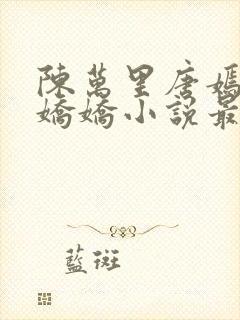 陳萬里唐嫣
嬌嬌小說最
藍斑